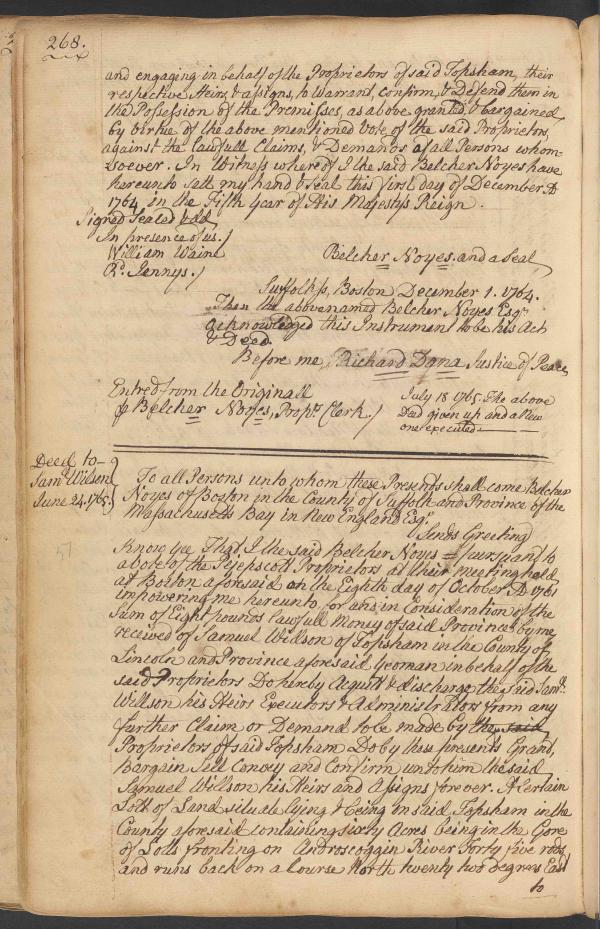 268.
and engaging in behalf of the Proprietors of said Topsham, their
respective Heirs, & assigns, to Warrant, confirm, & Defend them in
the Possession of the Premisses, as above granted, & bargained
by virtue of the above mentioned Vote of the said Proprietors,
against the lawfull Claims, & Demands of all Persons whom-
soever. In Witness whereof I the said Belcher Noyes have
hereunto sett my hand & seal this first day of December A D
1764 in the Fifth Year of His Majestys Reign.
Signed Sealed & dd
In presence of us.
William Waine
Belcher Noyes. and a Seal
Rd. Jennys.
Suffolk ss, Boston December 1. 1764.
Then the abovenamed Belcher Noyes Esqr
acknowledged this Instrument to be his Act
& Deed
Before me, Richard Dana Justice of Peace,
Entred from the Originall
July 18 1765. The above
p Belcher Noyes, Propr. Clerk.
Deed given up and a New
one executed
Deed to
Saml Wilson
June 24. 1765.
To all Persons unto whom these Presents shall come Belcher
Noyes of Boston in the County of Suffolk and Province of the
Massachusetts Bay in New England Esqr
Sends Greeting
57
Know Yee That I the said Belcher Noyes pursuant to
a Vote of the Pejepscott Proprietors at their meeting held
at Boston aforesaid on the Eighth day of October A D 1761
impowering me hereunto, for and in Consideration of the
Sum of Eight pounds lawfull Money of said Province by me
received of Samuel Willson of Topsham in the County of
Lincoln and Province aforesaid Yeoman in behalf of the
said Proprietors Do hereby Acquitt & discharge the said Saml.
Willson his Heirs Executors & Administrators from any
further Claim or Demand to be made by the said
Proprietors of said Topsham Do by these presents Grant,
Bargain Sell Convey and Confirm unto him the said
Samuel Willson his Heirs and Assigns forever. A Certain
Lott of Land situate lying & being in said Topsham in the
County aforesaid containing sixty Acres being in the Gore
of Lotts fronting on Androscoggin River Forty five rods,
and runs back on a Course North twenty two degrees East
to